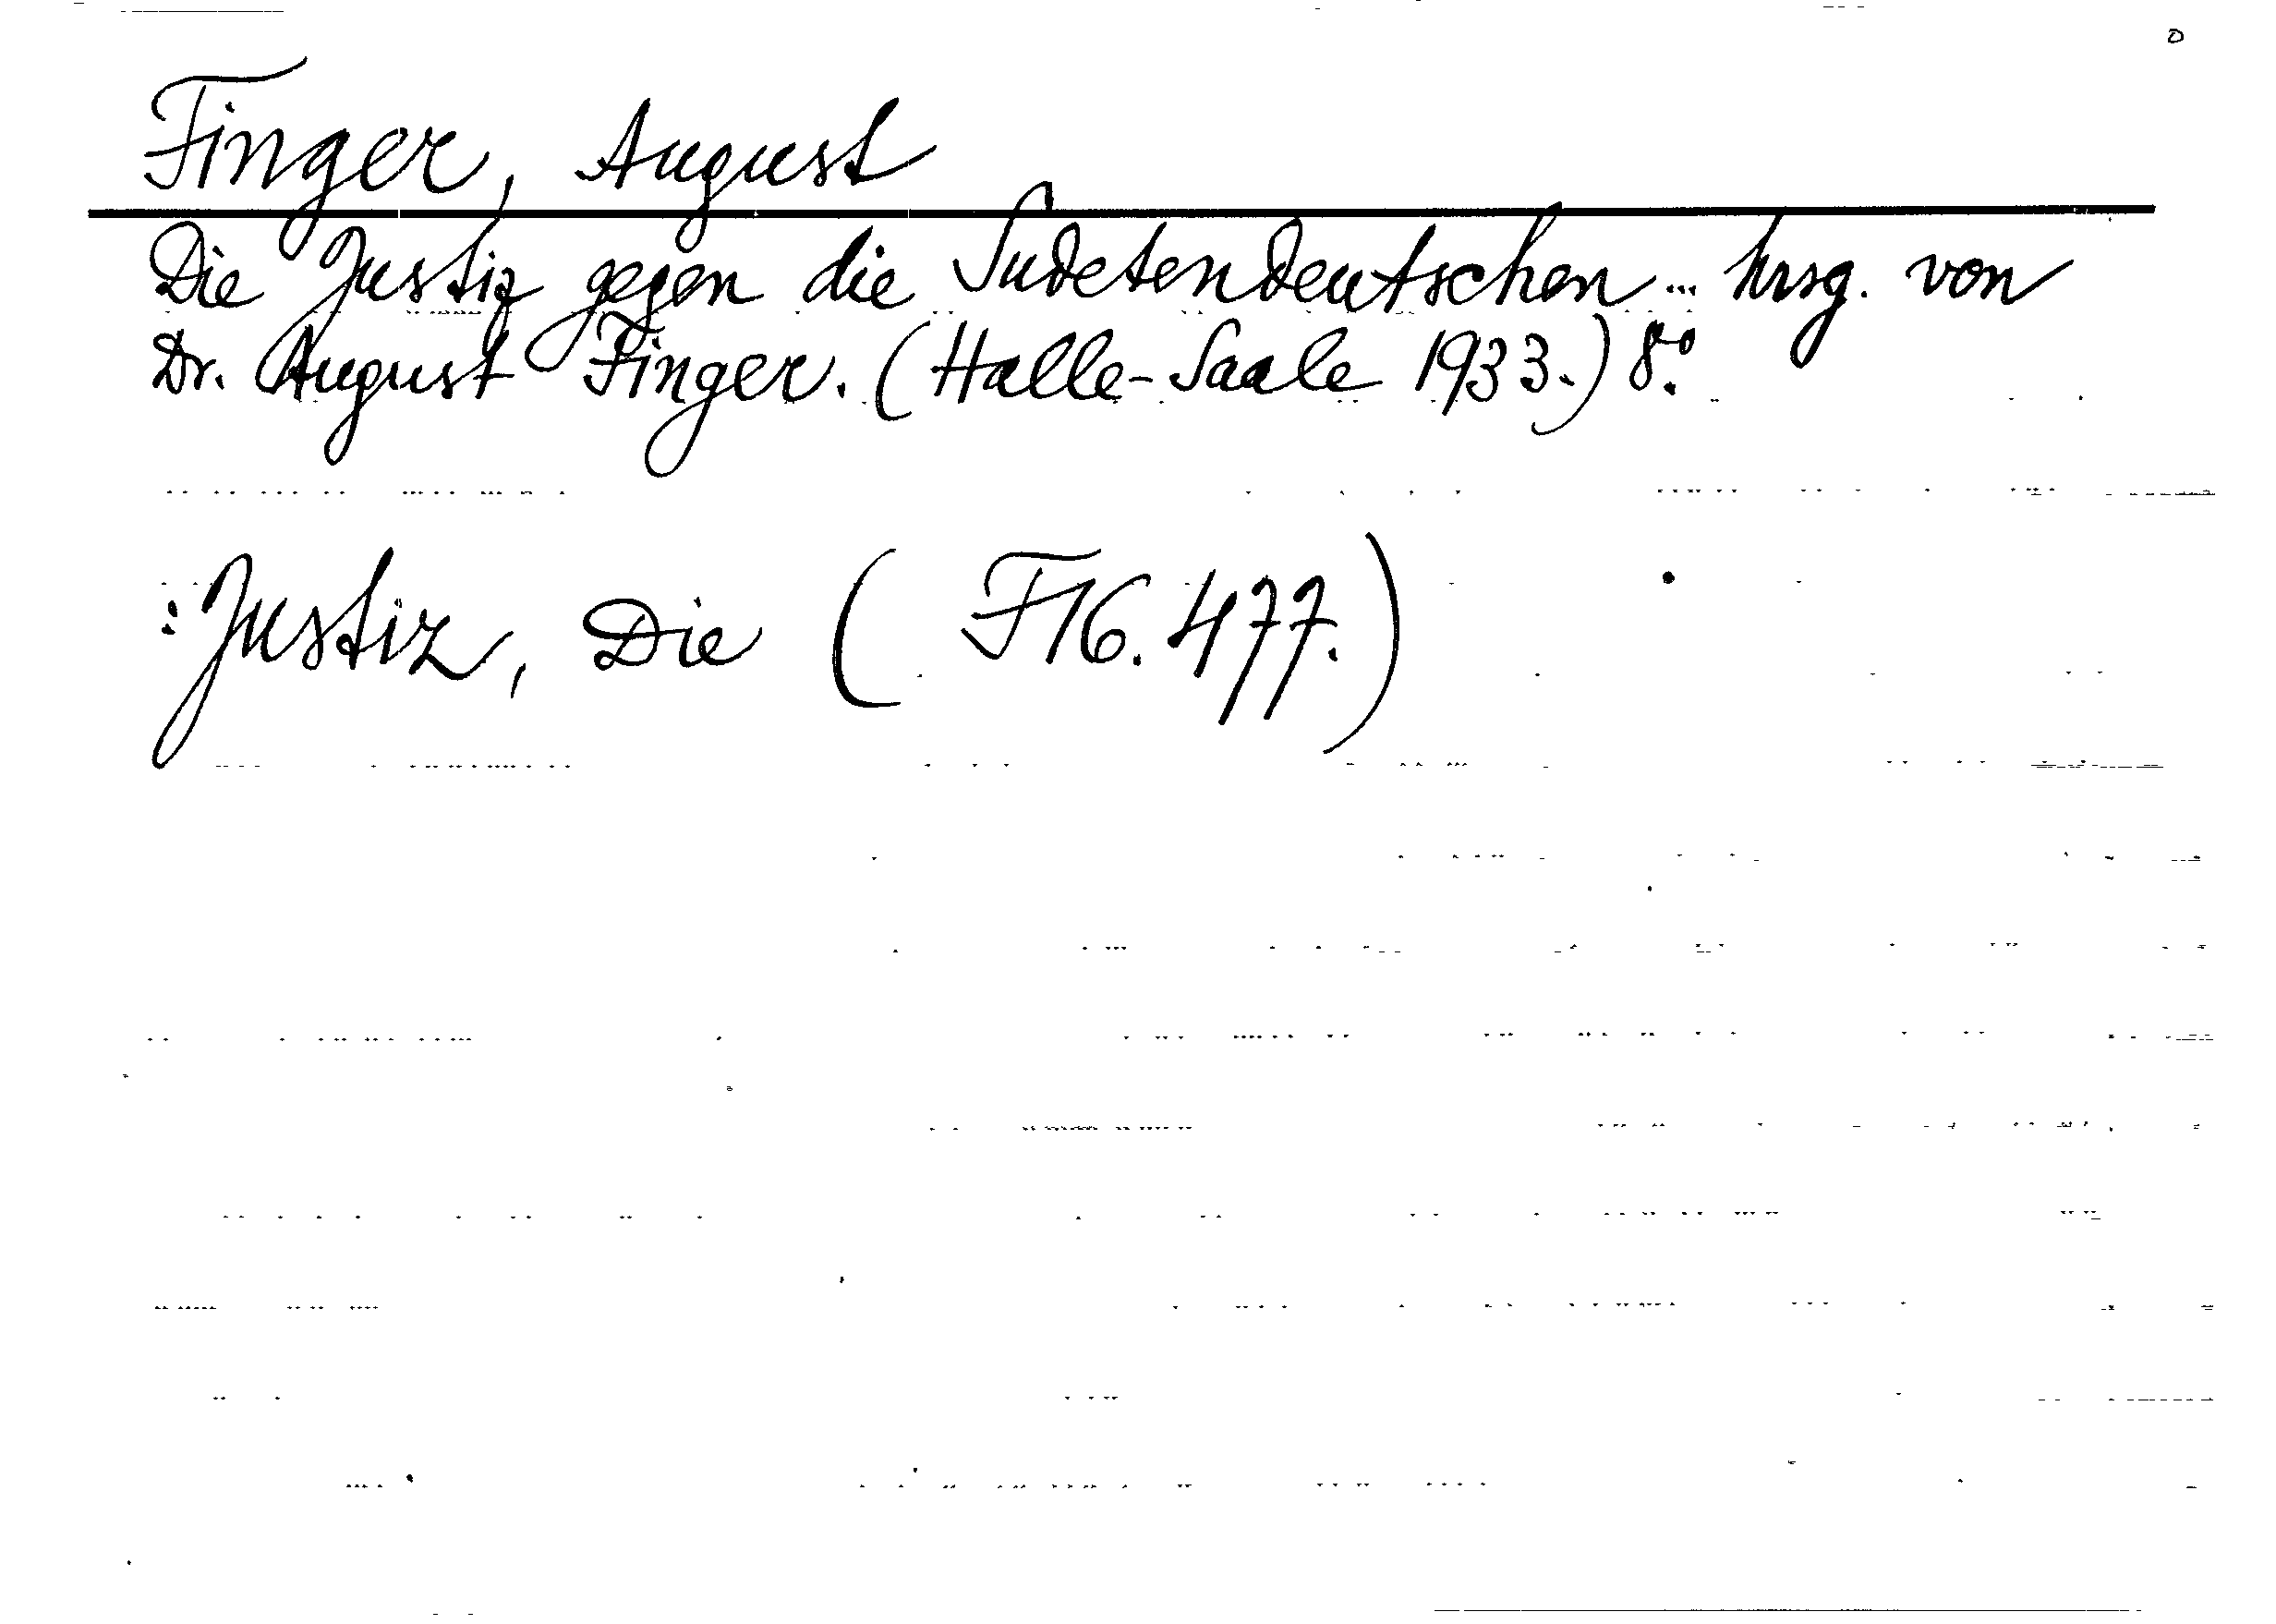 Finger, August
Die Justiz gegen die Sudetendeutschen ... hrsg. von
Dr. August Finger. (Halle-Saale 1933.) 8.º
: Justiz, Die ( F16.477.)